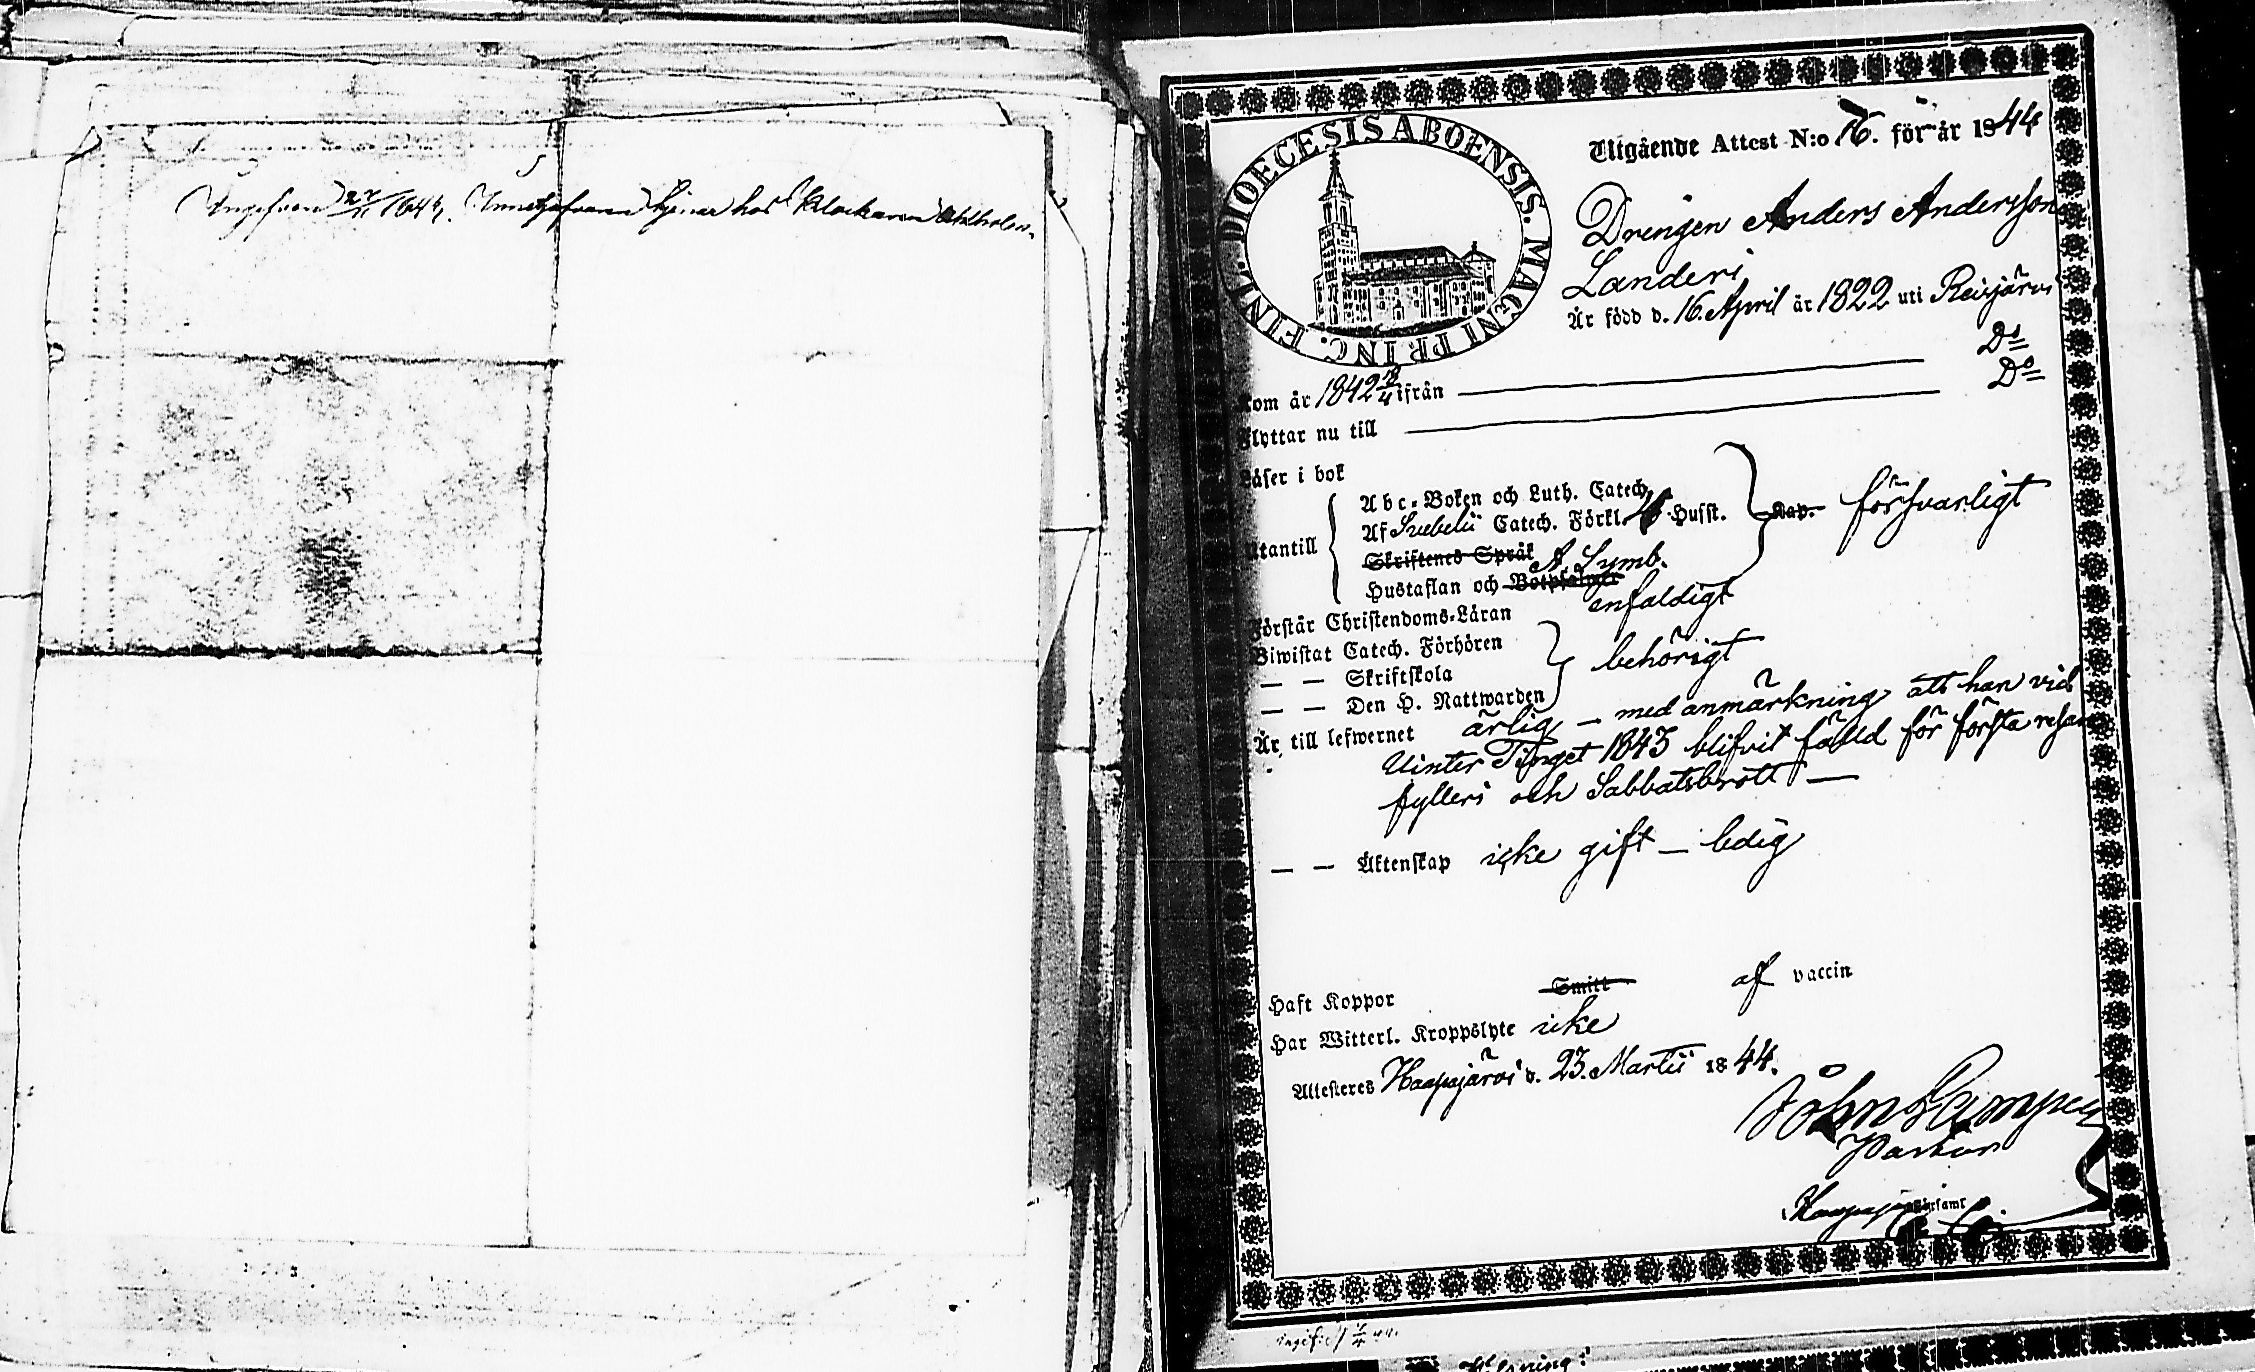 Ingifven 27/11 1844. Innehafvaren tjenar hos Klockaren
DIOECESIS ABOENSIS. MAGNI PRINC. FINL.
Utgående Attest N:o 76. för år 1844
Drengen Anders Andersson
Landeri
Är född d. 16. April år 1822 uti Reisjärvi
Kom år 1842 18/4 ifrån Do
Flyttar nu till Do
Läser i bok
Utantill
Abc-Boken och Luth. Catech.
Af Svebelii Catech. Förkl. Husst. Kap. försvarligt
Skriftenes Språk A. Symb.
Hustaflan och Botpsalmer
Förstår Christendoms-Läran enfaldigt
Biwistat Catech. Förhören
— — Skriftskola behörigt
— — Den H. Nattwarden
Är till lefwernet ärlig — med anmärkning att han vid
Vinter Tinget 1843 blifvit fälld för första resan
fylleri och Sabbatsbrott —
— — Äktenskap icke gift — ledig
Haft Koppor Smitt af vaccin
Har Witterl. Kroppslyte icke
Attesteras Haapajärvi d. 23. Martii 1844.
Pastor